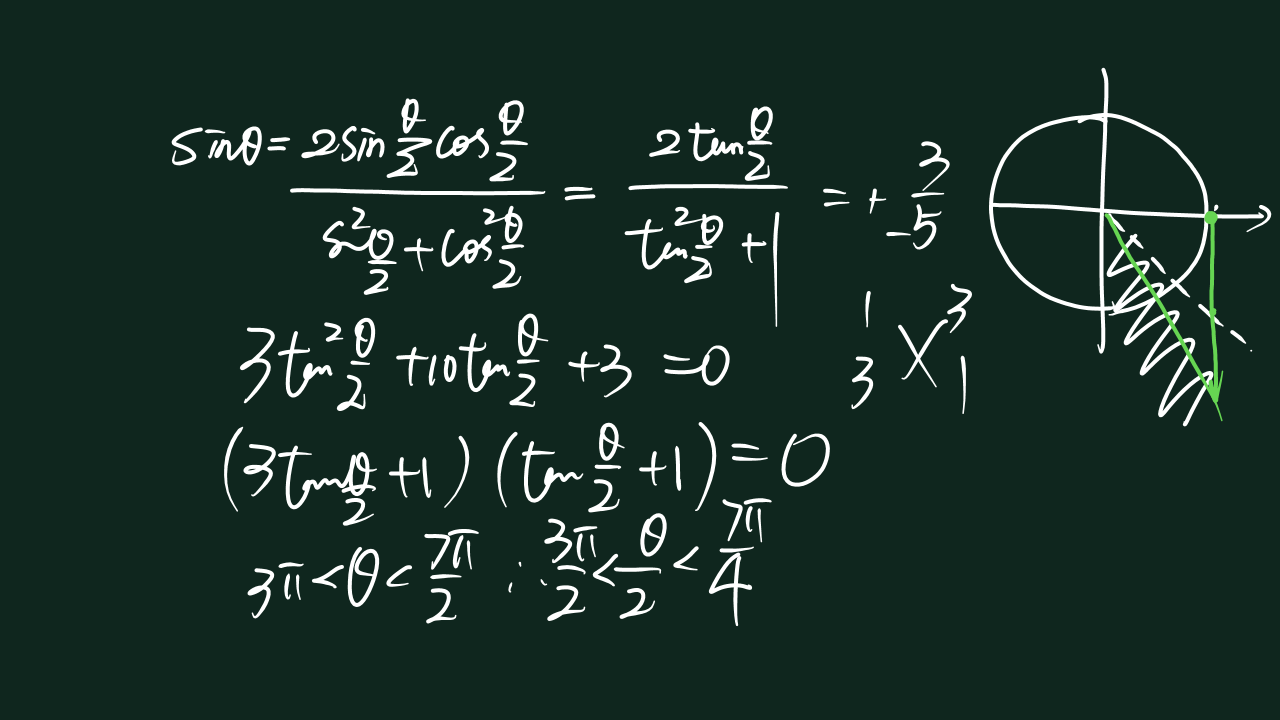 sinθ = (2sin θ/2 cos θ/2)/(sin² θ/2 + cos² θ/2) = (2tan θ/2)/(tan² θ/2 + 1) = + 3/-5
3tan² θ/2 + 10tan θ/2 + 3 = 0
1 3
3 1
(3tan θ/2 + 1)(tan θ/2 + 1) = 0
3π < θ < 7π/2 ∴ 3π/2 < θ/2 < 7π/4